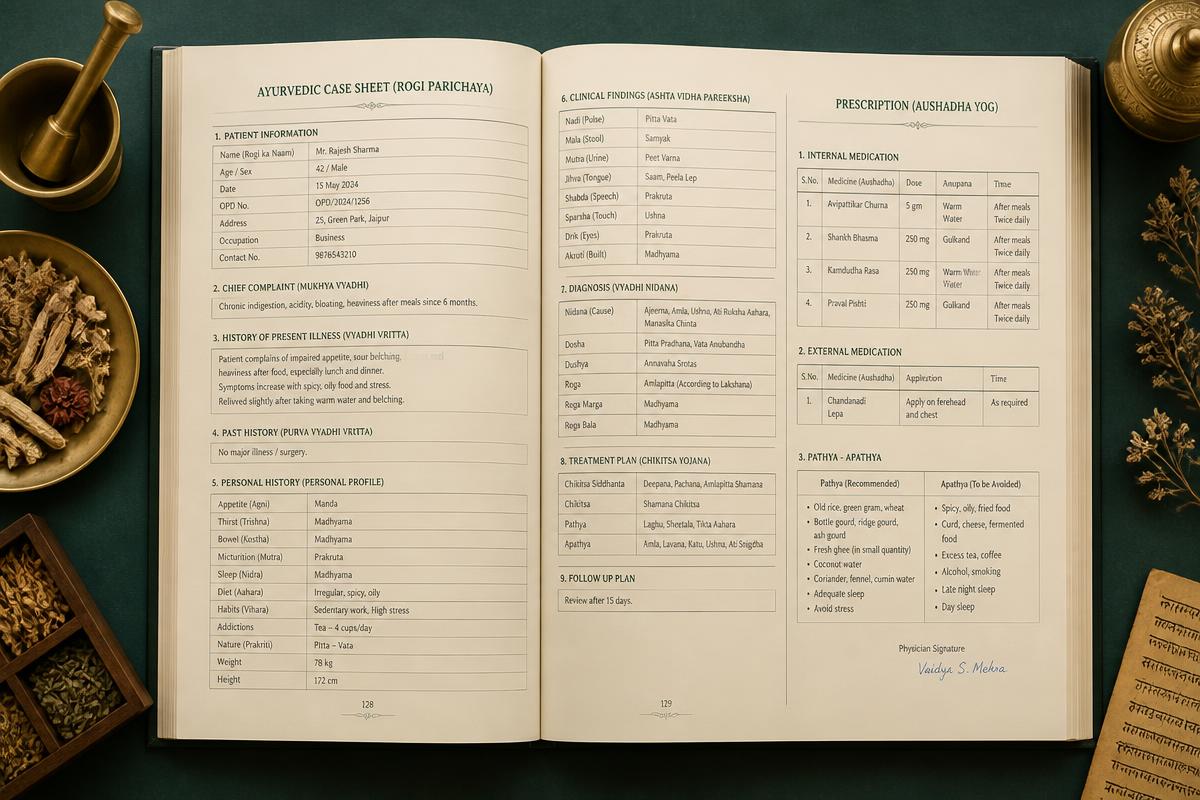 AYURVEDIC CASE SHEET (ROGI PARICHAYA)
1. PATIENT INFORMATION
Name (Rogi ka Naam) Mr. Rajesh Sharma
Age / Sex 42 / Male
Date 15 May 2034
OPD No. OPD/2024/1256
Address 25, Green Park, Jaipur
Occupation Business
Contact No. 9876543210
2. CHIEF COMPLAINT (MUKHYA VYADHI)
Chronic indigestion, acidity, bloating, heaviness after meals since 6 months.
3. HISTORY OF PRESENT ILLNESS (VYADHI VRITTA)
Patient complains of impaired appetite, sour belching,
heaviness after food, especially lunch and dinner.
Symptoms increase with spicy, oily food and stress.
Relived slightly after taking warm water and belching.
4. PAST HISTORY (PURVA VYADHI VRITTA)
No major illness / surgery.
5. PERSONAL HISTORY (PERSONAL PROFILE)
Appetite (Agni) Manda
Thirst (Trishna) Madhyama
Bowel (Kostha) Madhyama
Micturition (Mutra) Prakruta
Sleep (Nidra) Madhyama
Diet (Aahara) Irregular, spicy, oily
Habits (Vihara) Sedentary work, High stress
Addictions Tea – 4 cups/day
Nature (Prakriti) Pitta – Vata
Weight 78 kg
Height 172 cm
128
6. CLINICAL FINDINGS (ASHTA VIDHA PAREEKSHA)
Nadi (Pulse) Pitta Vata
Mala (Stool) Samyak
Mutra (Urine) Peet Varna
Jihva (Tongue) Saam, Peela Lep
Shabda (Speech) Prakruta
Sparsha (Touch) Ushna
Drik (Eyes) Prakruta
Akruti (Built) Madhyama
7. DIAGNOSIS (VYADHI NIDANA)
Nidana (Cause) Ajeerna, Amla, Ushna, Ati Ruksha Aahara,
Manasika Chinta
Dosha Pitta Pradhana, Vata Anubandha
Dushya Annavaha Srotas
Roga Amlapitta (According to Lakshana)
Roga Marga Madhyama
Roga Bala Madhyama
8. TREATMENT PLAN (CHIKITSA YOJANA)
Chikitsa Siddhanta Deepana, Pachana, Amlapitta Shamana
Chikitsa Shamana Chikitsa
Pathya Laghu, Sheetala, Tikta Aahara
Apathya Amla, Lavana, Katu, Ushna, Ati Snigdha
9. FOLLOW UP PLAN
Review after 15 days.
129
PRESCRIPTION (AUSHADHA YOG)
1. INTERNAL MEDICATION
S.No. Medicine (Aushadha) Dose Anupana Time
1. Avipattikar Churna 5 gm Warm After meals
Water Twice daily
2. Shankh Bhasma 250 mg Gulkand After meals
Twice daily
3. Kamdudha Rasa 250 mg Warm After meals
Water Twice daily
4. Praval Pishti 250 mg Gulkand After meals
Twice daily
2. EXTERNAL MEDICATION
S.No. Medicine (Aushadha) Application Time
1. Chandanadi Apply on ferehead As required
Lepa and chest
3. PATHYA - APATHYA
Pathya (Recommended) Apathya (To be Avoided)
• Old rice, green gram, wheat
• Bottle gourd, ridge gourd,
ash gourd
• Fresh ghee (in small quantity)
• Coconut water
• Coriander, fennel, cumin water
• Adequate sleep
• Avoid stress
• Spicy, oily, fried food
• Curd, cheese, fermented
food
• Excess tea, coffee
• Alcohol, smoking
• Late night sleep
• Day sleep
Physician Signature
Vaidya S. Mehra